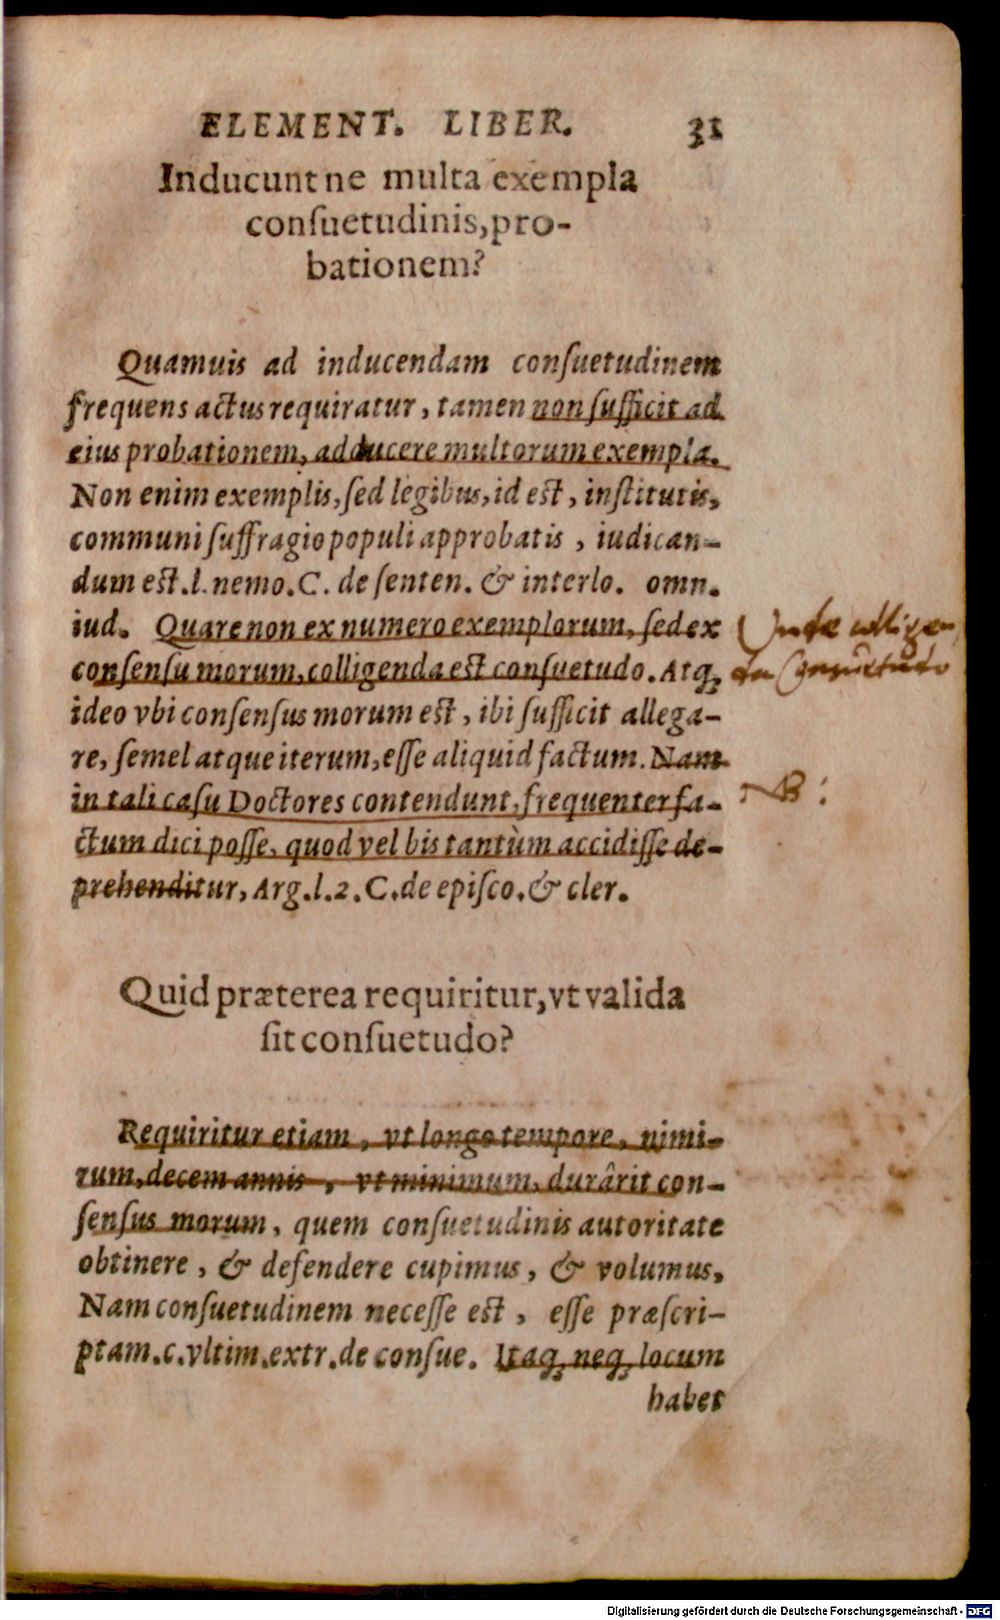 ELEMENT. LIBER. 31
Inducuntne multa exempla
conſuetudinis, pro-
bationem?
Quamuis ad inducendam conſuetudinem
frequens actus requiratur, tamen non ſufficit ad
eius probationem, adducere multorum exempla.
Non enim exemplis, ſed legibus, id eſt, inſtitutis,
communi ſuffragio populi approbatis, iudican-
dum eſt. l. nemo. C. de ſenten. & interlo. omn.
iud. Quare non ex numero exemplorum, ſed ex
conſenſu morum, colligenda eſt conſuetudo. Atq;
Unde colligen
da Conſuetudo
ideo vbi conſenſus morum eſt, ibi ſufficit allega-
re, ſemel atque iterum, eſſe aliquid factum. Nam
in tali caſu Doctores contendunt, frequenter fa-
NB:
ctum dici poſſe, quod vel bis tantùm accidiſſe de-
prehenditur, Arg. l. 2. C. de epiſco. & cler.
Quid præterea requiritur, vt valida
ſit conſuetudo?
Requiritur etiam, vt longo tempore, nimi-
rum, decem annis, vt minimum, durârit con-
ſenſus morum, quem conſuetudinis autoritate
obtinere, & defendere cupimus, & volumus,
Nam conſuetudinem neceſſe eſt, eſſe præſcri-
ptam. c. vltim. extr. de conſue. Itaq; neq; locum
habet
Digitalisierung gefördert durch die Deutsche Forschungsgemeinschaft - DFG